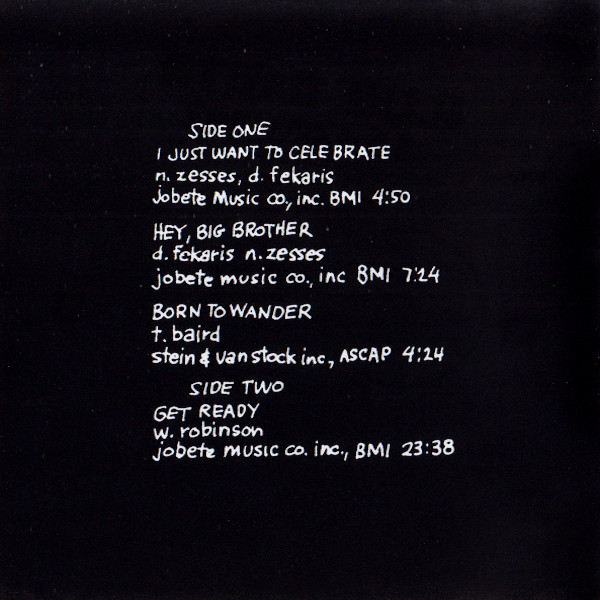 SIDE ONE
I JUST WANT TO CELEBRATE
n. zesses, d. fekaris
jobete Music co., inc. BMI 4:50
HEY, BIG BROTHER
d. fekaris n. zesses
jobete music co., inc BMI 7:24
BORN TO WANDER
t. baird
stein & van stock inc., ASCAP 4:24
SIDE TWO
GET READY
w. robinson
jobete music co. inc., BMI 23:38